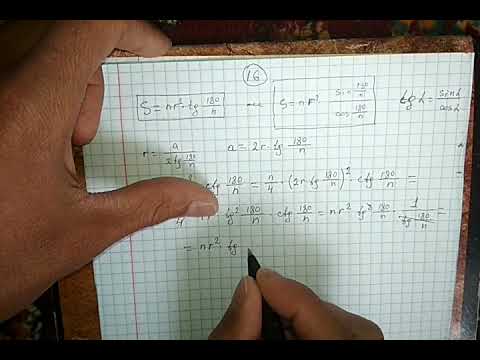 16
S = nr² · tg 180/n
S = nr² sin 180/n / cos 180/n
tg α = sin α / cos α
r = a / 2 tg 180/n
a = 2r · tg 180/n
ctg 180/n = n/4 · (2r · tg 180/n)² · ctg 180/n =
4 tg² 180/n · ctg 180/n = nr² tg² 180/n · 1 / tg 180/n =
= nr² · tg